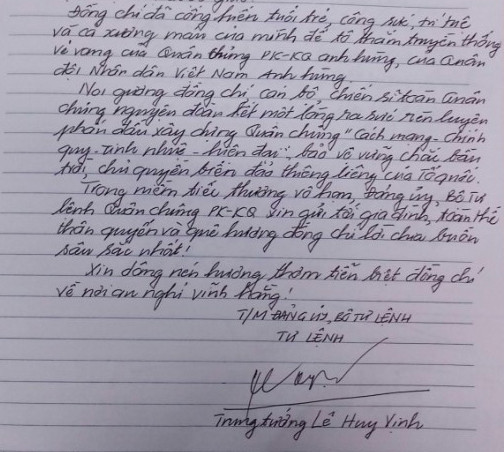 Đồng chí đã cống hiến tuổi trẻ, công sức, trí tuệ
và cả xương máu của mình để tô thắm truyền thống
vẻ vang của Quân chủng PK-KQ anh hùng, của Quân
đội Nhân dân Việt Nam Anh hùng.
Noi gương đồng chí, cán bộ, chiến sĩ toàn Quân
chủng nguyện đoàn kết một lòng ra sức rèn luyện
phấn đấu xây dựng Quân chủng "Cách mạng - chính
quy - tinh nhuệ - hiện đại", bảo vệ vững chắc bầu
trời, chủ quyền biển đảo thiêng liêng của Tổ quốc.
Trong niềm tiếc thương vô hạn, Đảng ủy, Bộ Tư
lệnh Quân chủng PK-KQ xin gửi tới gia đình, toàn thể
thân quyến và quê hương đồng chí lời chia buồn
sâu sắc nhất!
Xin dâng nén hương thơm tiễn biệt đồng chí
về nơi an nghỉ vĩnh hằng!
T/M ĐẢNG ỦY, BỘ TƯ LỆNH
TƯ LỆNH
Trung tướng Lê Huy Vịnh